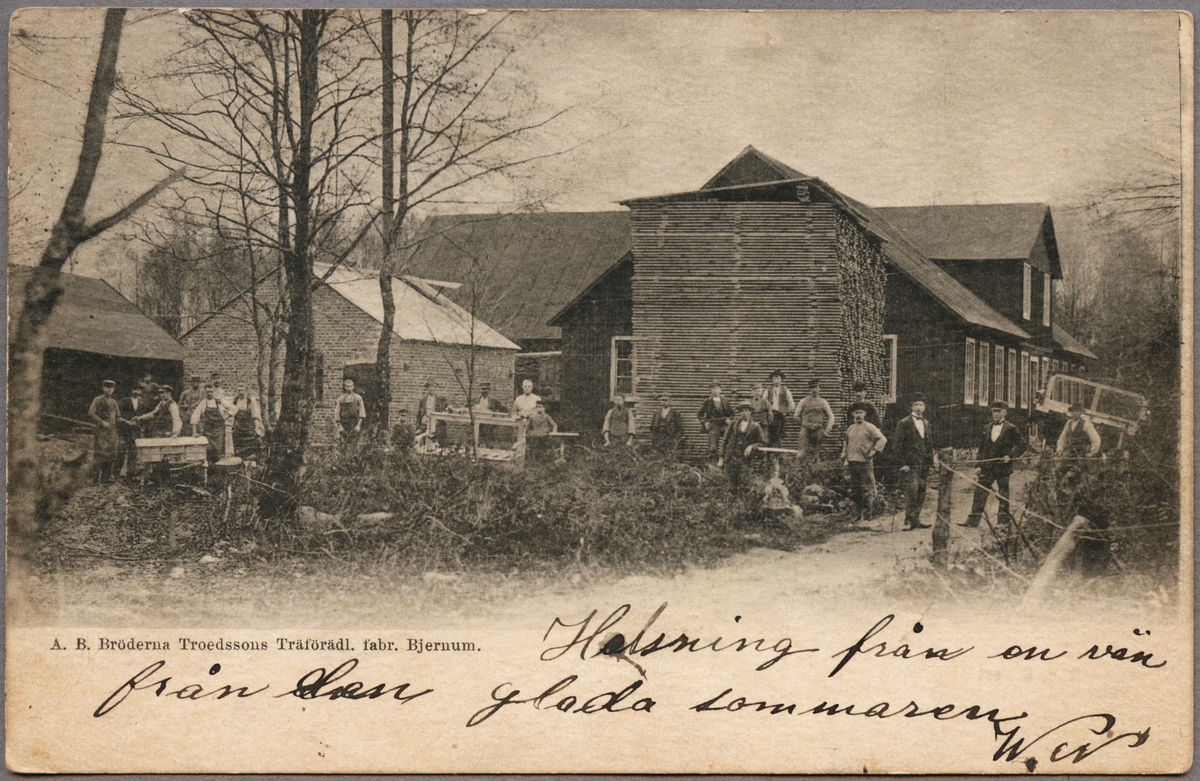 A. B. Bröderna Troedssons Träförädl. fabr. Bjernum.
Helsning från en vän
från den glada sommaren
W. W